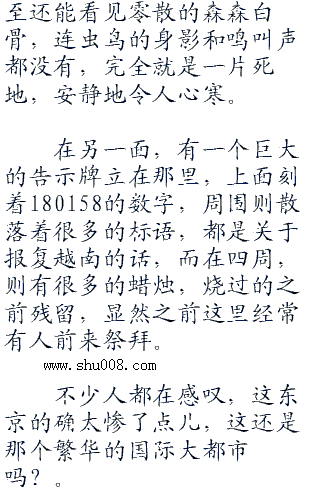 至还能看见零散的森森白
骨，连虫鸟的身影和鸣叫声
都没有，完全就是一片死
地，安静地令人心寒。
在另一面，有一个巨大
的告示牌立在那里，上面刻
着180158的数字，周围则散
落着很多的标语，都是关于
报复越南的话，而在四周，
则有很多的蜡烛，烧过的之
前残留，显然之前这里经常
有人前来祭拜。
www.shu008.com
不少人都在感叹，这东
京的确太惨了点儿，这还是
那个繁华的国际大都市
吗？。